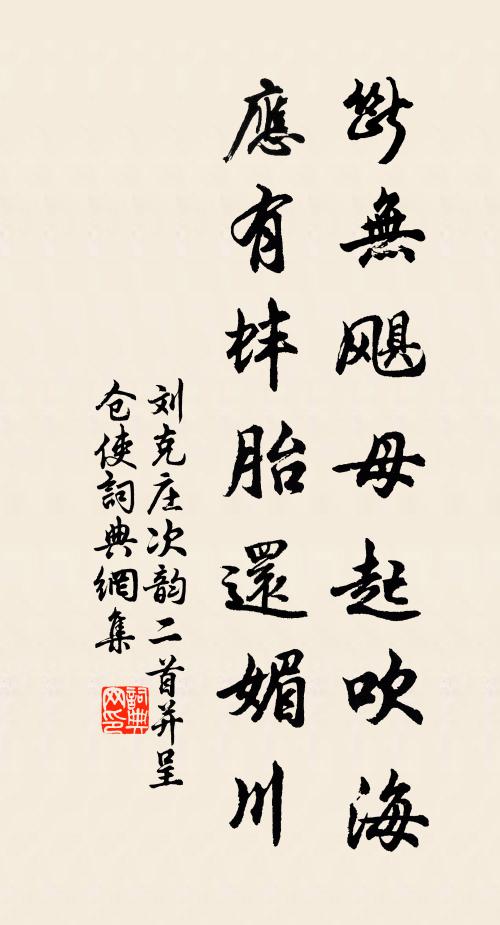 斷無颶母起吹海
應有蚌胎還媚川
刘克庄次韵二首并呈
仓使詞典網集
詞典网印